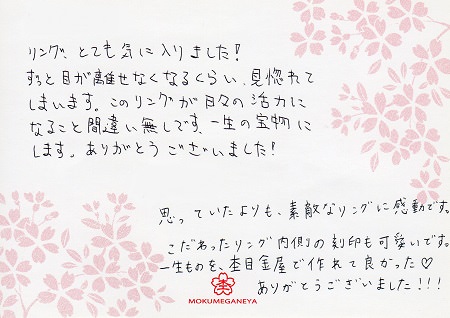 リング、とても気に入りました!
ずっと目が離せなくなるくらい、見惚れて
しまいます。このリングが日々の活力に
なること間違い無しです、一生の宝物に
します。ありがとうございました!
思っていたよりも、素敵なリングに感動です。
こだわったリング内側の刻印も可愛いです。
一生ものを、杢目金屋で作れて良かった♡
ありがとうございました!!!
MOKUMEGANEYA